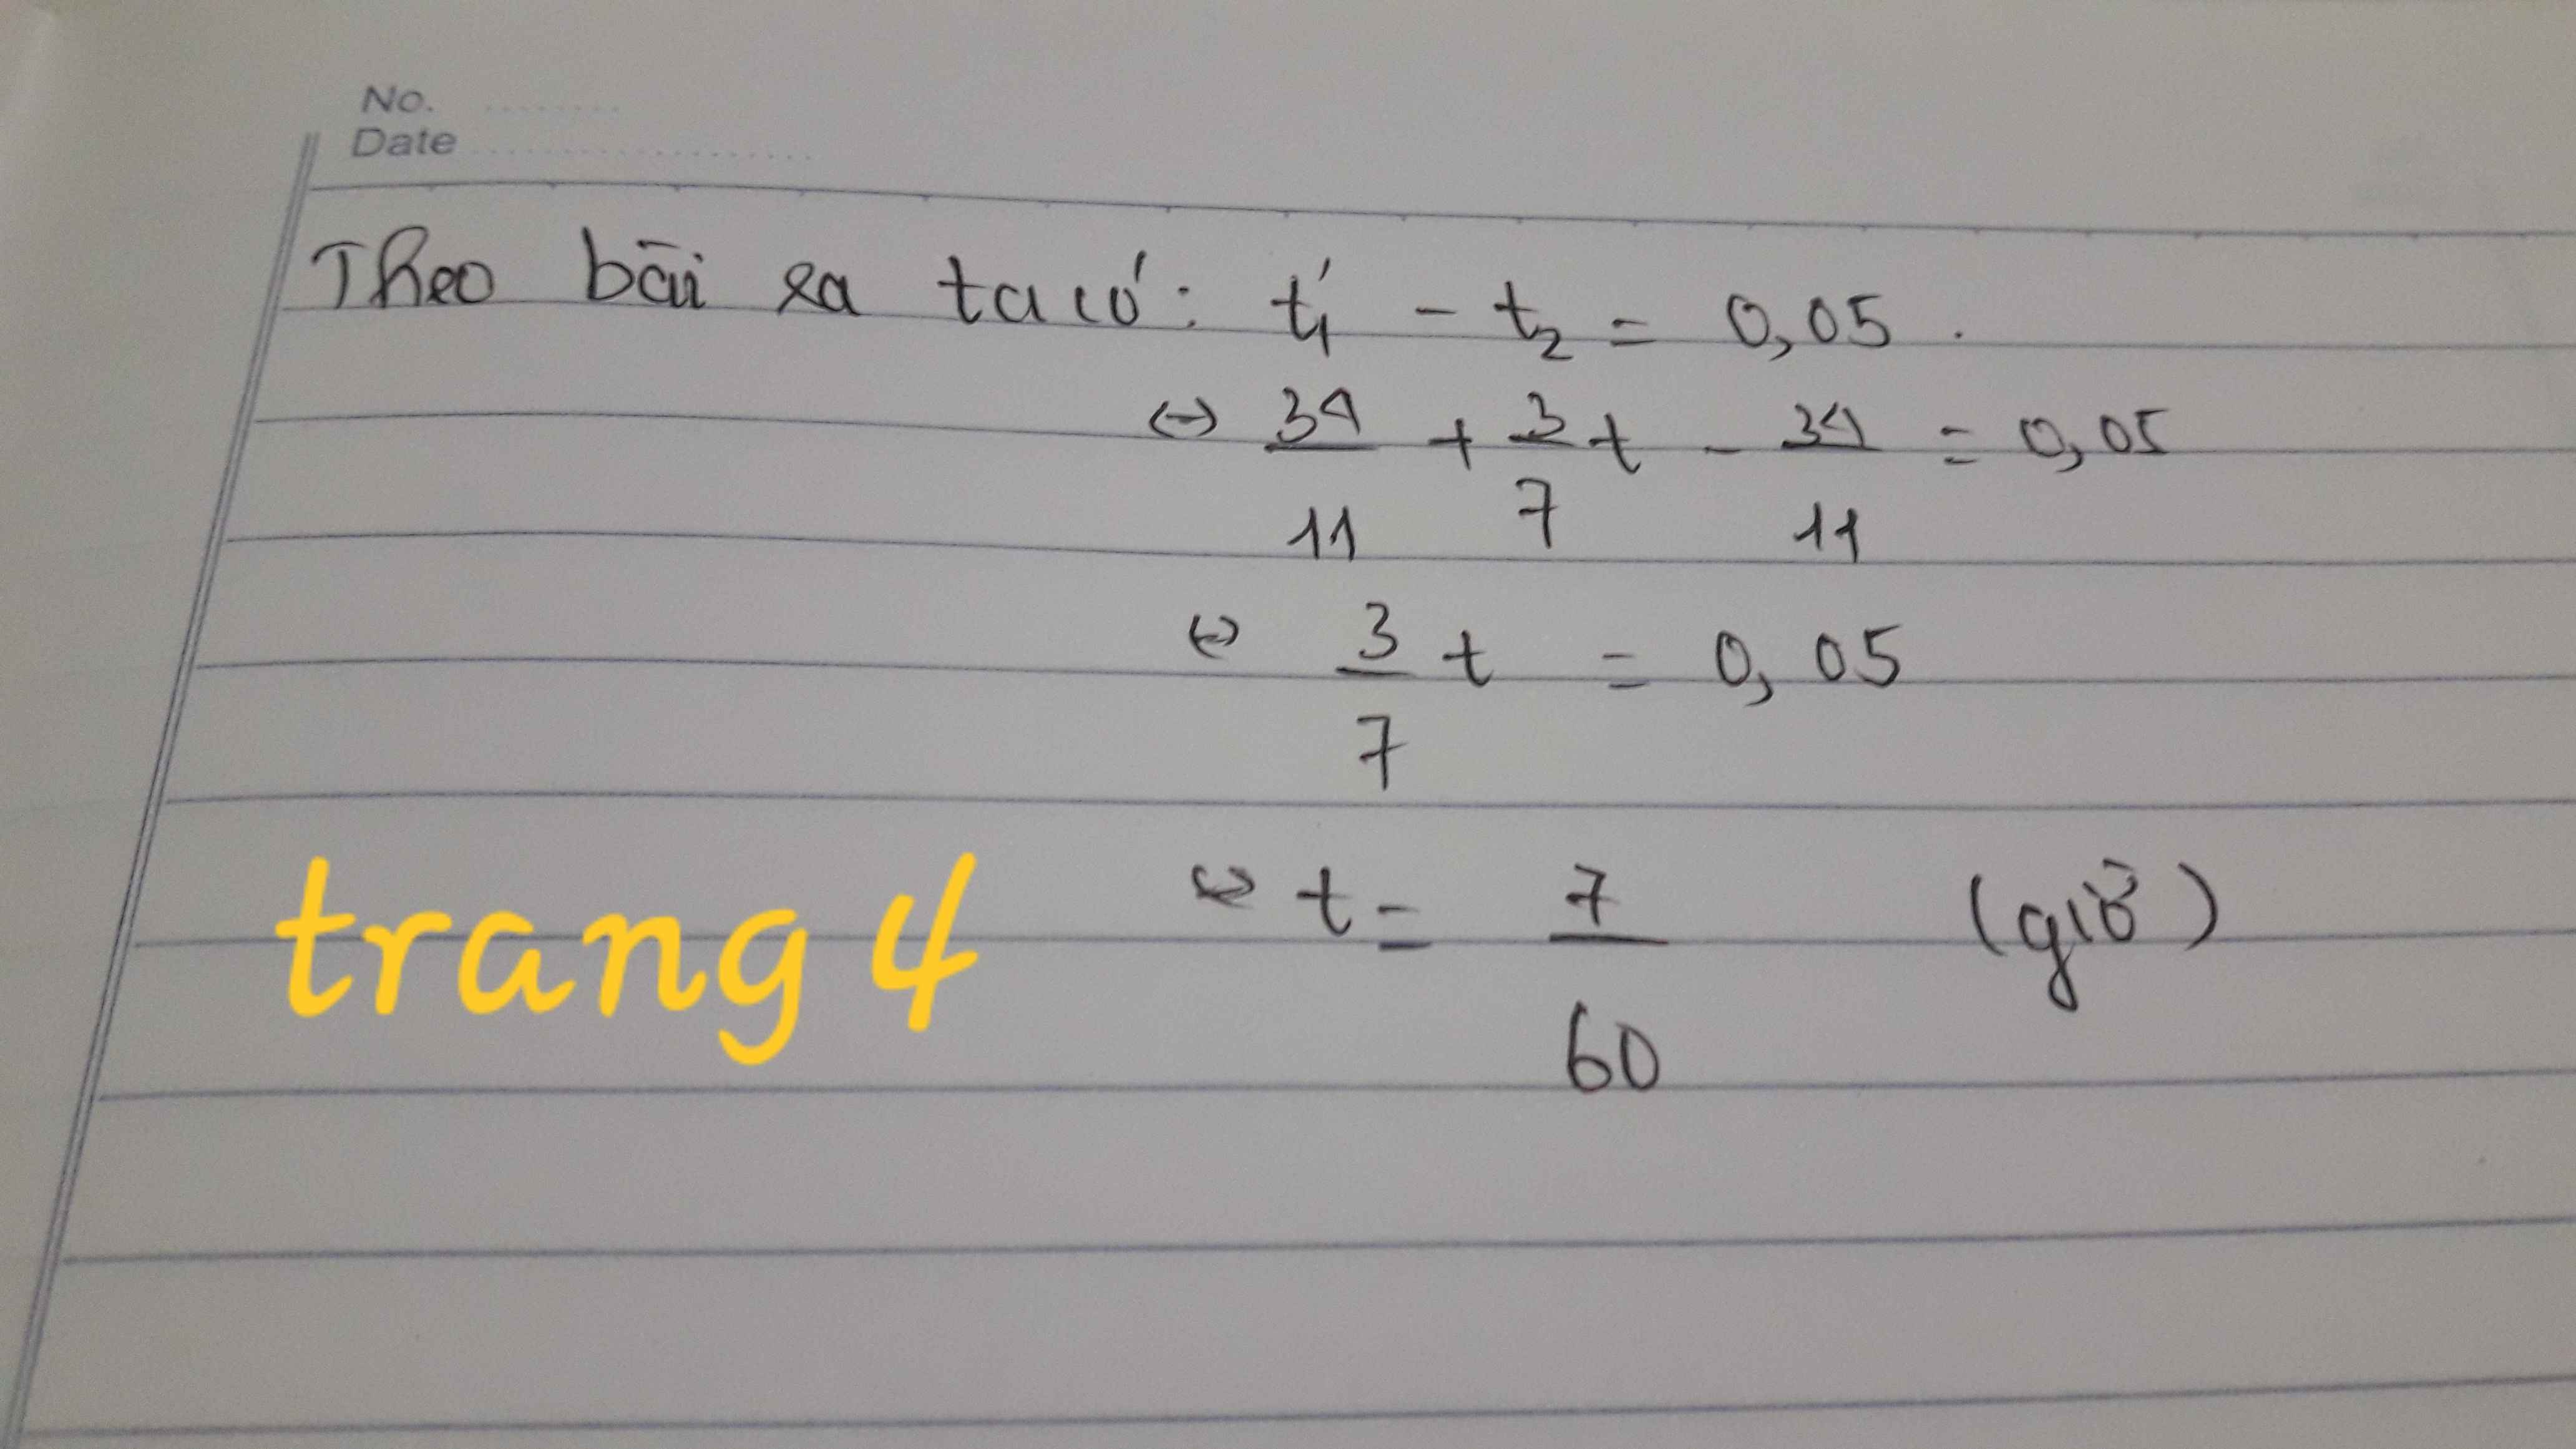 No.
Date
Theo bài ra ta có: t'₁ - t₂ = 0,05.
↔ 34/11 + 3/7 t - 34/11 = 0,05
↔ 3/7 t = 0,05
↔ t = 7/60 (giờ)
trang 4